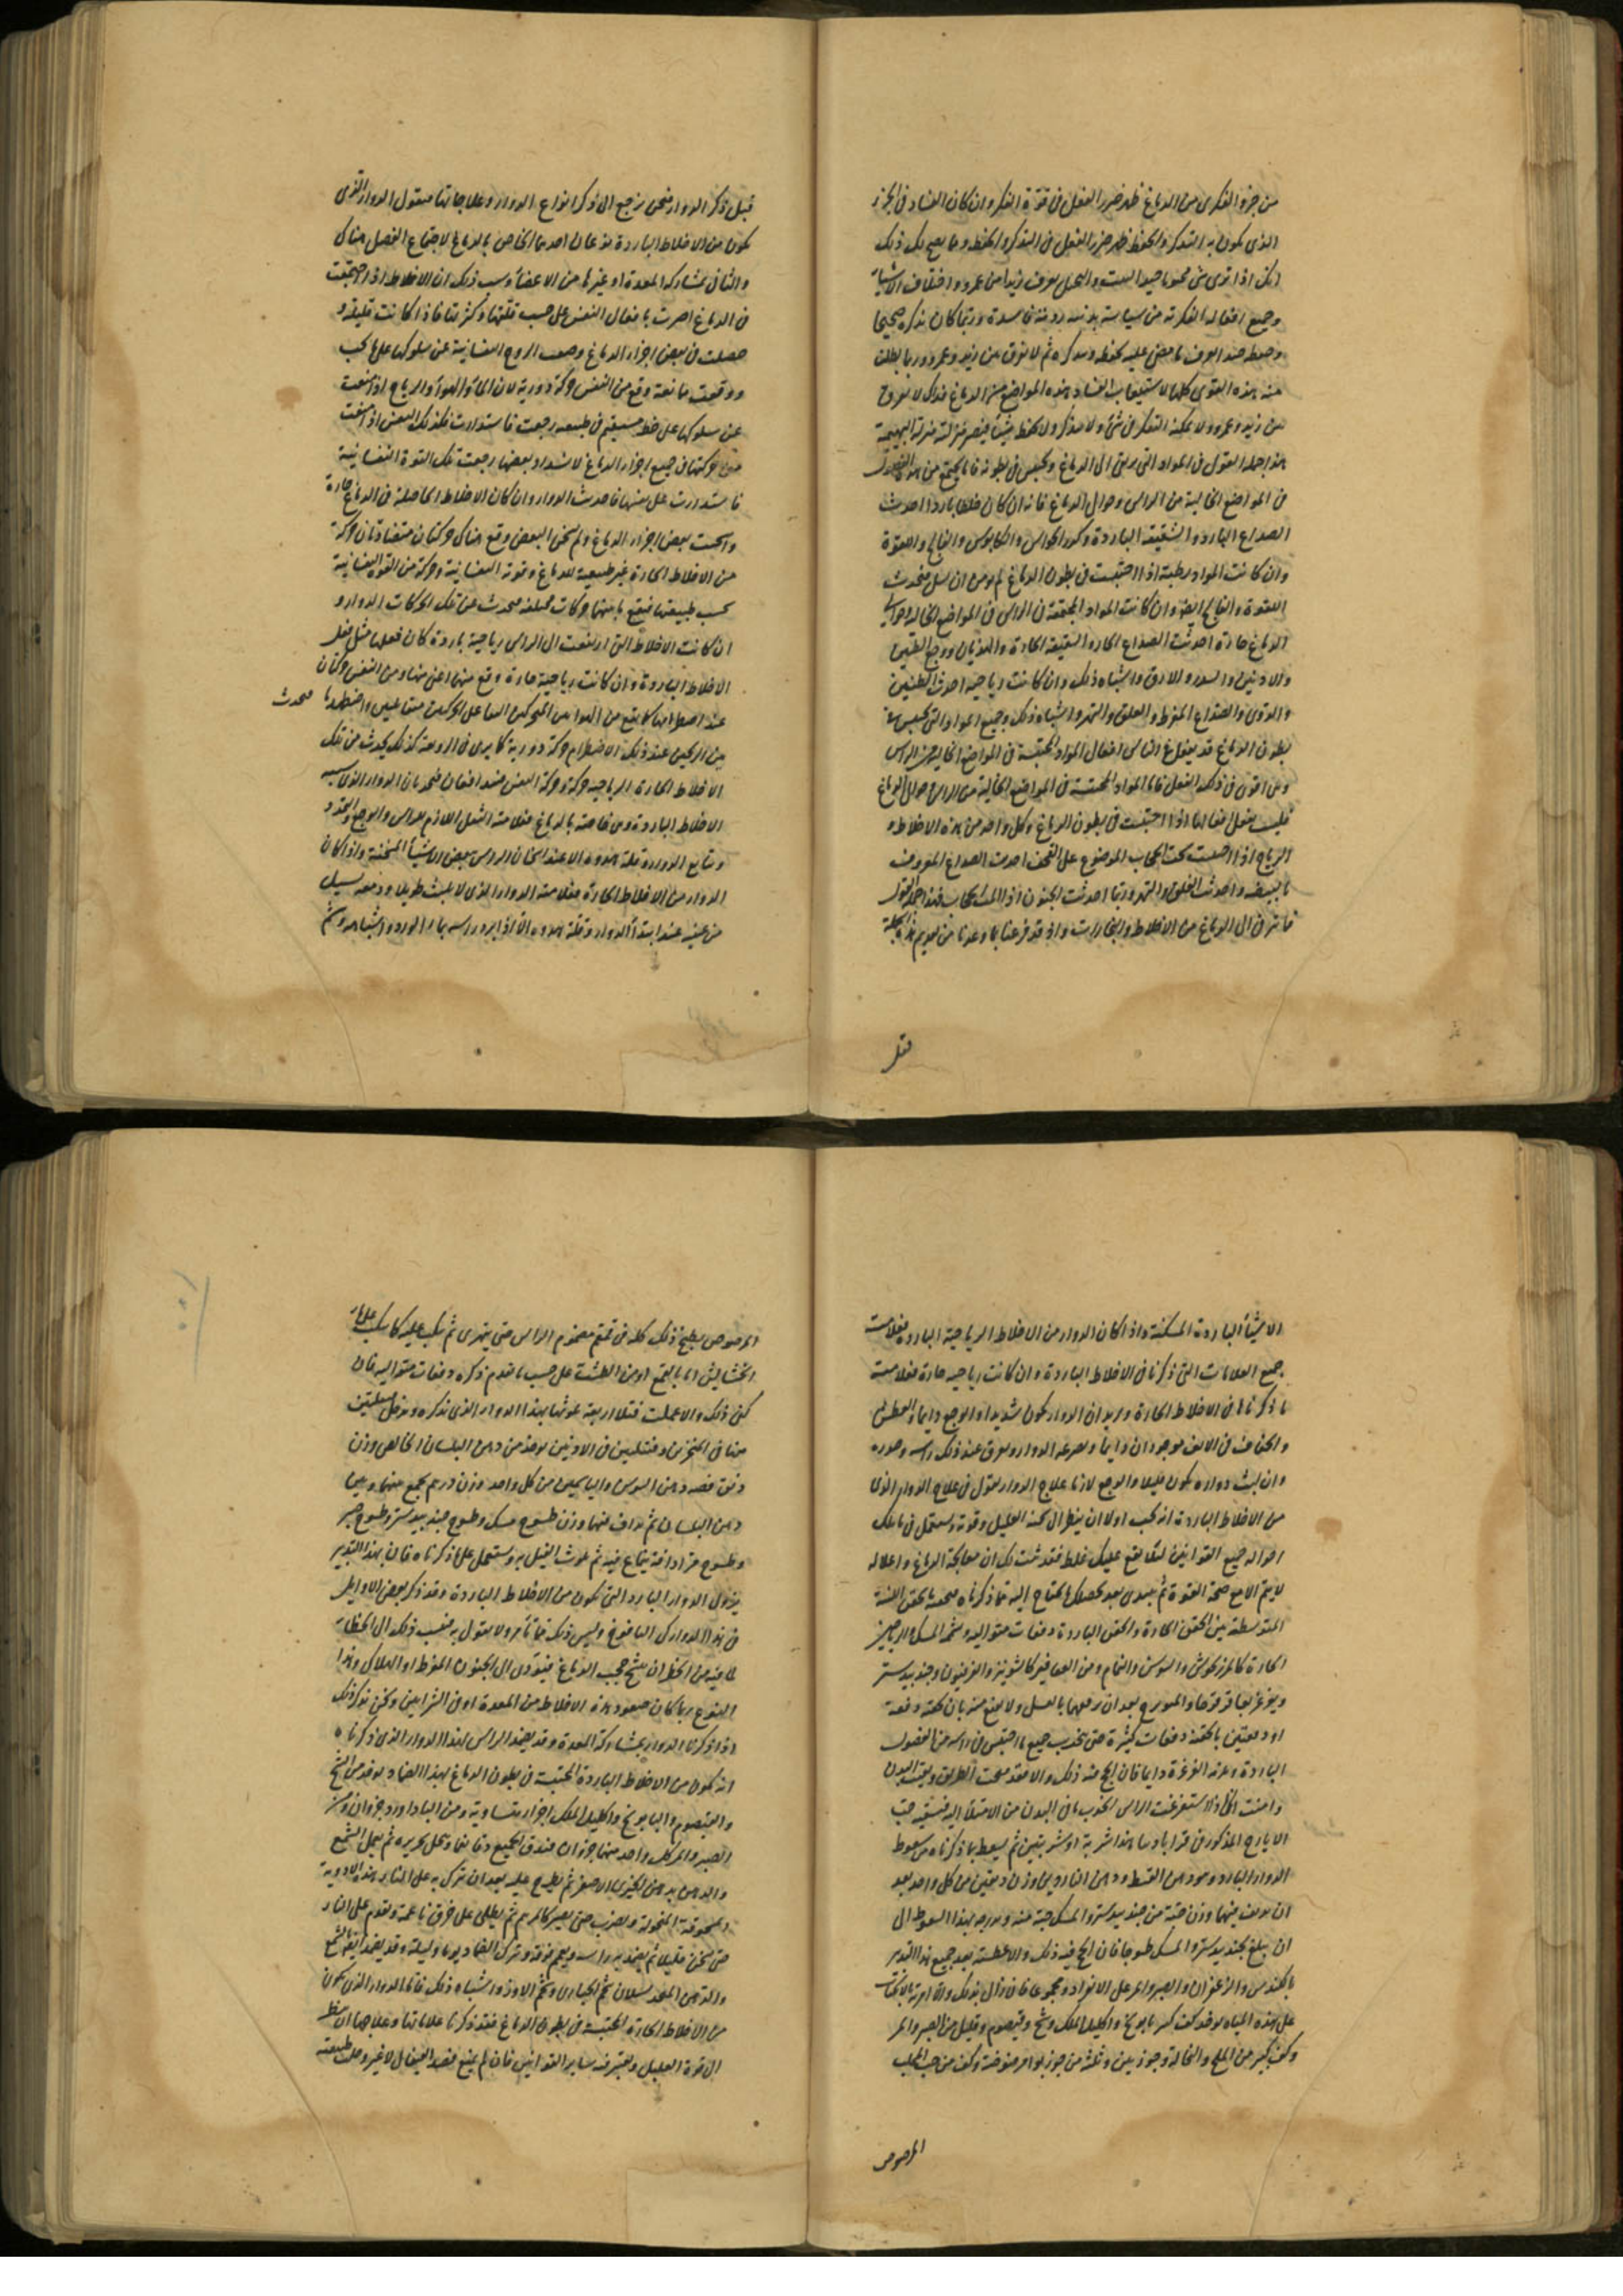 من جزو الفكري من الدماغ ظهر ضرر الفعل في قوة الفكر وان كان الفساد في الجزء
الذي يكون به التذكر والحفظ ظهر ضرر الفعل في التذكر والحفظ ومما يصح لك ذلك
انك اذا ترى من
وجميع افعاله الفكرية من سياسة بدنه ردية فاسدة وربما كان تذكره صحيحا
يحفظه ويتذكره ثم لا يفرق بين زيد وعمرو وربما بطلت
منه هذه القوى كلها لاستيعاب الفساد هذه المواضع من الدماغ فذاك لا يفرق
بين زيد وعمرو ولا يمكنه التفكر في شيء ولا يتذكر ولا يحفظ شيئا فيصير بمنزلة البهيمة
هذا جملة القول في المواد التي ترتقي الى الدماغ وتحتبس في بطونه فاما ما يجتمع من هذه الفضول
في المواضع الخالية من الراس وحوالي الدماغ فانه ان كان خلطا باردا احدث
الصداع البارد والشقيقة الباردة وكدر الحواس والكابوس والفالج واللقوة
وان كانت المواد رطبة اذا احتبست في بطون الدماغ لم يؤمن ان يسيل فيحدث
اللقوة والفالج ايضا وان كانت المواد المجتمعة في الراس في المواضع الخالية وحوالي
الدماغ حادة احدثت الصداع الحار والشقيقة الحادة والهذيان ووجع العينين
والاذنين والسدر والارق واشباه ذلك وان كانت رياحية احدث الطنين
والدوي والصداع المفرط والقلق والسهر واشباه ذلك وجميع المواد التي تحتبس في
بطون الدماغ قد يفعل في الناس افعال المواد المحتبسة في المواضع الخالية من الراس
وهي اقوى في ذلك الفعل فاما المواد المحتبسة في المواضع الخالية من الراس وحوالي الدماغ
فليس يفعل فعالها اذا احتبست في بطون الدماغ وكل واحد من هذه الاخلاط و
الرياح اذا حصلت تحت الحجاب الموضوع على القحف احدث الصداع المعروف
بالبيضة واحدث القلق والسهر وربما احدثت الجنون اذا المت الحجاب فهذا جملة القول
فيما ترقى الى الدماغ من الاخلاط والبخارات واذ قد فرغنا بما وعدنا من تقديم هذه الجملة
قبل
قبل ذكر الدوار فنحن نرجع الى ذكر انواع الدوار وعلاجاتها فنقول الدوار الذي
يكون من الاخلاط الباردة نوعان احدهما الخاص بالدماغ لاجتماع الفضل هناك
والثاني بمشاركة المعدة او غيرها من الاعضاء وسبب ذلك ان الاخلاط اذا اجتمعت
في الدماغ اضرت بافعال النفس على حسب قلتها وكثرتها فاذا كانت قليلة و
حصلت في بعض اجزاء الدماغ ومنعت الروح النفسانية عن سلوكها على ما يجب
ووقعت ممانعة وقع من النفس حركة دورية لان الماء والهواء والرياح اذا منعت
عن سلوكها على خط مستقيم في طبيعته رجعت فاستدارت فكذلك النفس اذا منعت
من حركتها في جميع اجزاء الدماغ لانسداد بعضها رجعت تلك القوة النفسانية
فاستدارت على نفسها فاحدث الدوار وان كان الاخلاط الحاصلة في الدماغ حارة
واسخنت بعض اجزاء الدماغ ولم يسخن البعض وقع هناك حركتان متضادتان حركة
من الاخلاط الحارة غير طبيعية للدماغ وقوته النفسانية وحركة من القوة النفسانية
بحسب طبيعتها فيقع بينهما حركات مختلفة فيحدث من تلك الحركات الدوار و
ان كانت الاخلاط التي ارتفعت الى الراس رياحية باردة كان فعلها مثل فعل
الاخلاط الباردة وان كانت رياحية حارة وقع منها اعني منها ومن النفس حركتان
عند اصطدامها كما يقع من الهوائين المتحركين
فيحدث
من الريحين عند ذلك الاضطرام حركة دورية كما يرى في الزوبعة كذلك يحدث من تلك
الاخلاط الحارة الرياحية حركة وحركة النفس
الاخلاط الباردة وهي خاصة بالدماغ فعلامته الثقل اللازم للراس والوجع والتمدد
وتتابع الدوار وقلة هدوه الا عند اسخان الراس ببعض الاشياء المسخنة واذا كان
الدوار من الاخلاط الحارة فعلامته الدوار الذي لا يلبث طويلا ودمعة تسيل
من عينه عند ابتداء الدوار وقلة هدوه الا اذا برد راسه بماء الورد واشباهه وشم
الاشياء الباردة المسكنة واذا كان الدوار من الاخلاط الرياحية الباردة فعلامته
جميع العلامات التي ذكرنا في الاخلاط الباردة وان كانت رياحية حارة فعلامته
ما ذكرناها في الاخلاط الحارة ويزيد ان الدوار يكون شديدا والوجع دايما والعطس
والجفاف في الانف موجودان دايما ويصرعه الدوار ويعرق عند ذلك راسه وصدره
وان لبث دواره يكون قليلا والوجع لازما علاج الدوار نقول في علاج الدوار الذي
من الاخلاط الباردة انه يجب اولا ان ينظر الى سحنة العليل وقوته وتستعمل في ذلك
احواله جميع القوانين لئلا يقع عليك غلط فقد ثبت لك ان معالجة الدماغ واعلاله
لا يتم الا مع صحة القوة ثم يبتدى بعد تحصيلك ما يحتاج اليه مما ذكرناه فتحقنه بالحقن اللينة
المتوسطة بين الحقن الحارة والحقن الباردة دفعات متوالية ويشم المسك والرياحين
الحارة كالمرزنجوش والسوسن والنمام ومن العقاقير كالشونيز والفربيون وجندبيدستر
ويغرغر بعاقرقرحا والميويزج بعد ان تخلطهما بالعسل ولا تقنع منه بان تحقنه دفعة
او دفعتين بل تحقنه دفعات كثيرة حتى يجذب جميع ما احتبس في راسه من الفضول
الباردة وتلزمه الغرغرة دايما فان انجح فيه ذلك والا فقد فتحت الطريق ونقيت البدن
وامنت اذا استفرغت الراس انجذب ما في البدن من الامتلاء اليه فتسقيه حب
الايارج المذكور في قراباذيننا هذا شربة او شربتين ثم يسعط بما ذكرناه من سعوط
الدوار البارد وهو دهن القسط ودهن الناردين وزن دانقين من كل واحد بعد
ان يداف فيهما وزن حبة من جندبيدستر والمسك حبة منه وتدرجه بهذا السعوط الى
ان يبلغ بجندبيدستر والمسك طسوجا فان انجح فيه ذلك والا عطسته بعد جميع هذا التدبير
بالكندس والزعفران والصبر والمر على الانفراد ومجموعا فان زال بذلك والا امرته بالانكباب
على هذه المياه يؤخذ كف كبير بابونج واكليل الملك وشيح وقيصوم وقليل من الصبر والمر
وكف كبير من الملح والنخالة وجوزتين وثلثة من جوز بوا مرضوضة وكف من حب المحلب
المرضوض
المرضوض يطبخ ذلك كله في قمقم مضموم الراس حتى يتهرى ثم يكب عليه كما يكب على ماء
الخشايش اما بالقمع او من الطشت على حسب ما تقدم ذكره دفعات متوالية فان
كفى ذلك والا عملت فتلا اربعة غمستها بهذا الدواء الذي نذكره وتدخل فتيلتين
منها في المنخرين وفتيلتين في الاذنين يؤخذ من دهن البلسان الخالص وزن
دانق فضة ودهن السوسن والياسمين من كل واحد وزن درهم يجمع بينهما وبين
دهن البلسان ثم يداف فيها وزن طسوج مسك وطسوج جندبيدستر وطسوج صبر
وطسوج مر ادافة ينماع فيه ثم تلوث الفتيل به ويستعمل على ما ذكرناه فان بهذا التدبير
يزول الدوار البارد التي تكون من الاخلاط الباردة وقد ذكر بعض الاوايل
في هذا الدوار كي اليافوخ وليس ذلك مما تامر ولا نقول به فنسب ذلك الى الخطاء
لما فيه من الخطر ان يشنج حجب الدماغ فيؤدي الى الجنون المفرط او الهلاك وهذا
النوع ربما كان صعود هذه الاخلاط من المعدة او في الشرايين ونحن نذكر ذلك
اذا ذكرنا الدوار بمشاركة المعدة وقد يضمد الراس لهذا الدوار الذي ذكرناه
انه يكون من الاخلاط الباردة المحتبسة في بطون الدماغ بهذا الضماد يؤخذ من الشيح
والقيصوم والبابونج واكليل الملك اجزاء متساوية ومن الباذاورد جزوان ومن
الصبر والمر لكل واحد منهما جزوان فيدق الجميع دقا ناعما وينخل بحريرة ثم يعمل الشمع
والدهن بدهن الخيري الاصفر ثم يطرح عليه بعد ان ترك به على النار هذه الادوية
المسحوقة المنخولة ويضرب حتى يصير كالمرهم ثم يطلى على خرق ناعمة وتقدم على النار
حتى يسخن قليلا ثم يضمد به راسه ويعمم فوقه ويترك الضماد يوما وليلة وقد يضمد ايضا بالشمع
والدهن المتخذ بسيلان شحم الحبارى وشحم الاوز واشباه ذلك فاما الدوار الذي يكون
من الاخلاط الحارة المحتبسة في بطون الدماغ فقد ذكرنا علاماتها وعلاجها ان ينظر
الى قوة العليل ويعتبر فيه ساير القوانين فان لم يمنع فصد القيفال لا غير وحللت طبيعته